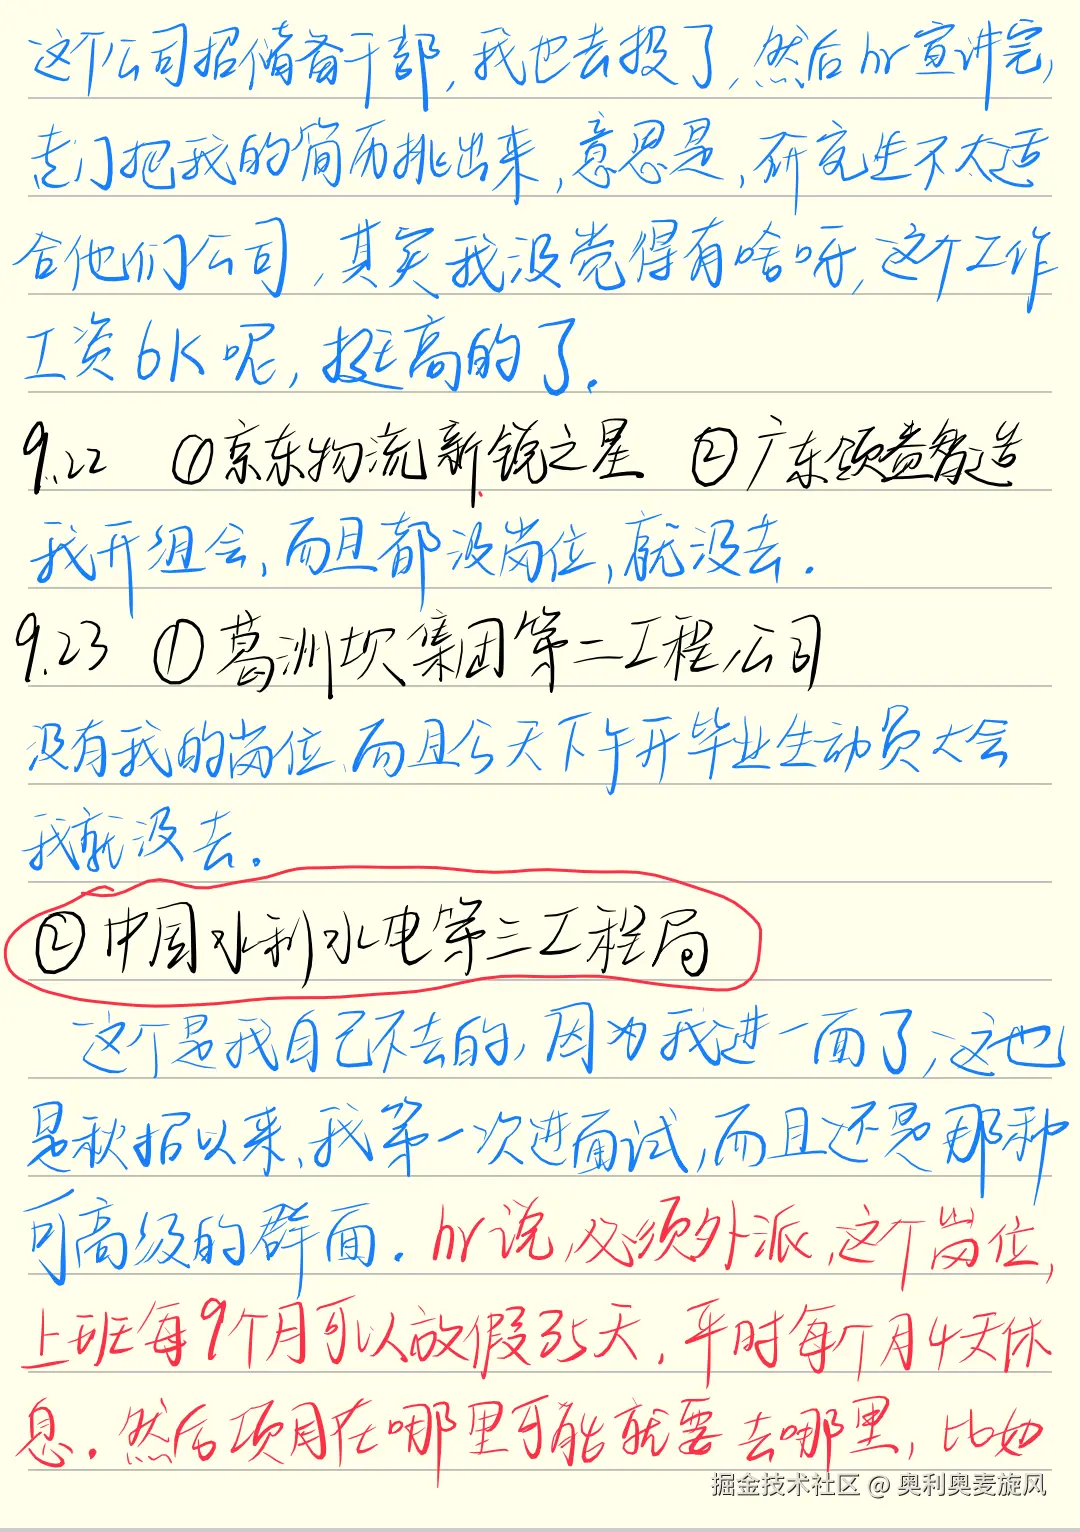 这个公司招储备干部，我也去投了，然后hr宣讲完，
专门把我的简历挑出来，意思是，研究生不太适
合他们公司，其实我没觉得有啥呀，这个工作
工资6K呢，挺高的了.
9.22 ①京东物流新锐之星 ②广东领益智造
我开组会，而且都没岗位，就没去.
9.23 ①葛洲坝集团第二工程公司
没有我的岗位、而且今天下午开毕业生动员大会
我就没去.
②中国水利水电第三工程局
这个是我自己不去的，因为我进一面了，这也
是秋招以来、我第一次进面试，而且还是那种
可高级的群面. hr说，必须外派，这个岗位，
上班每9个月可以放假35天，平时每个月4天休
息. 然后项目在哪里可能就要去哪里，比如
掘金技术社区 @ 奥利奥麦旋风